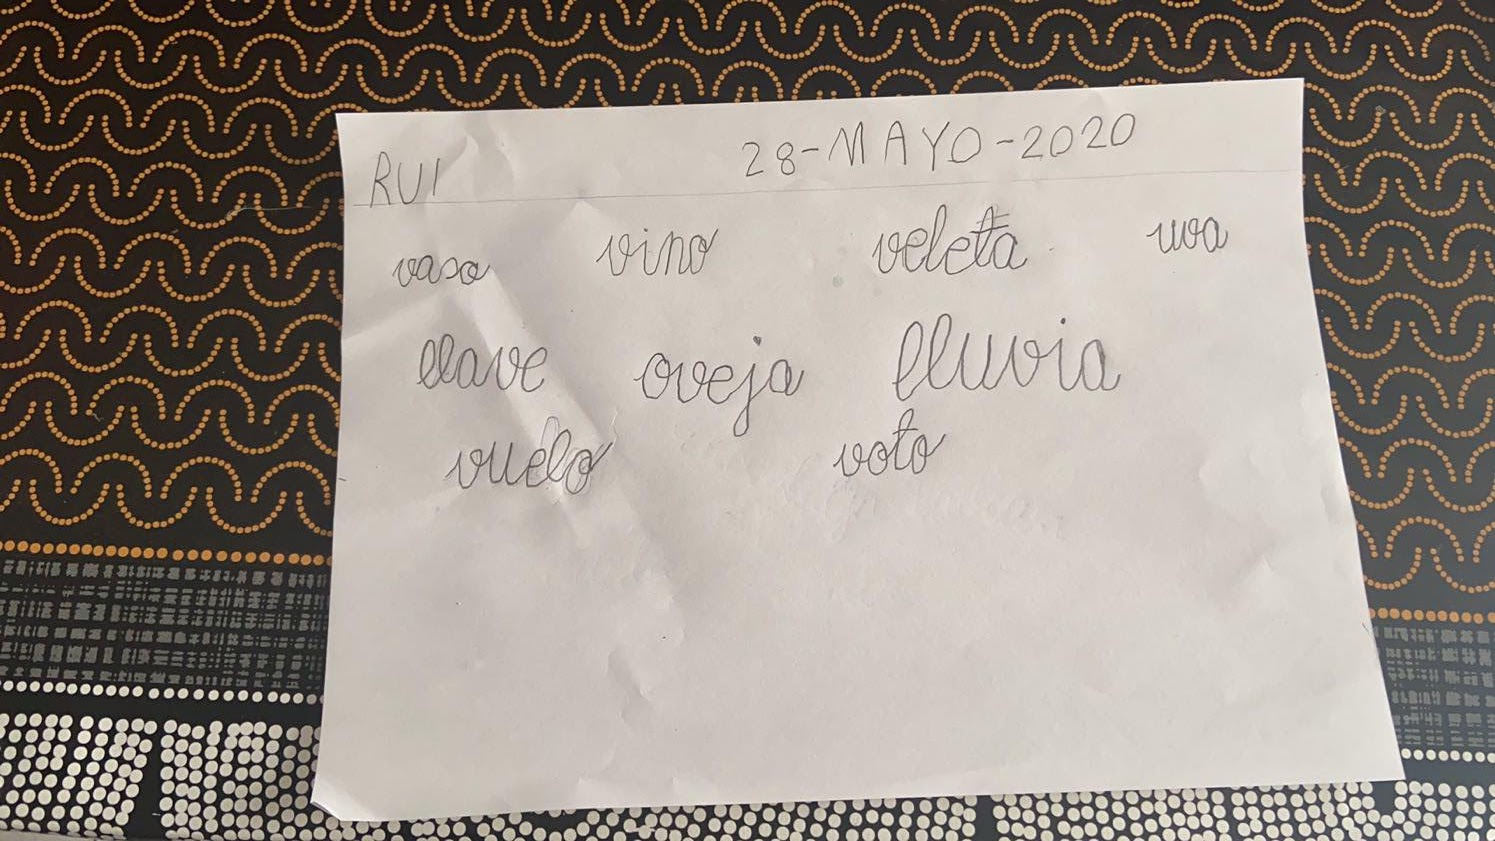 RUI 28-MAYO-2020
vaso vino veleta uva
llave oveja lluvia
vuelo voto